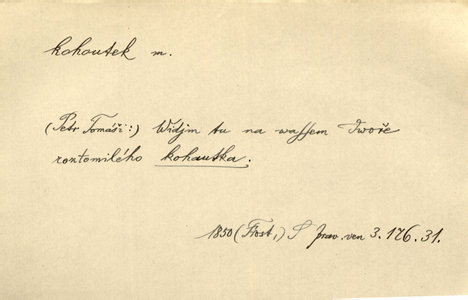 kohoutek m.
(Petr Tomáši:) Widjm tu na wassem Dwoře
roztomilého kohautka.
1850 (Frost,) S prav. ven 3. 176. 31.